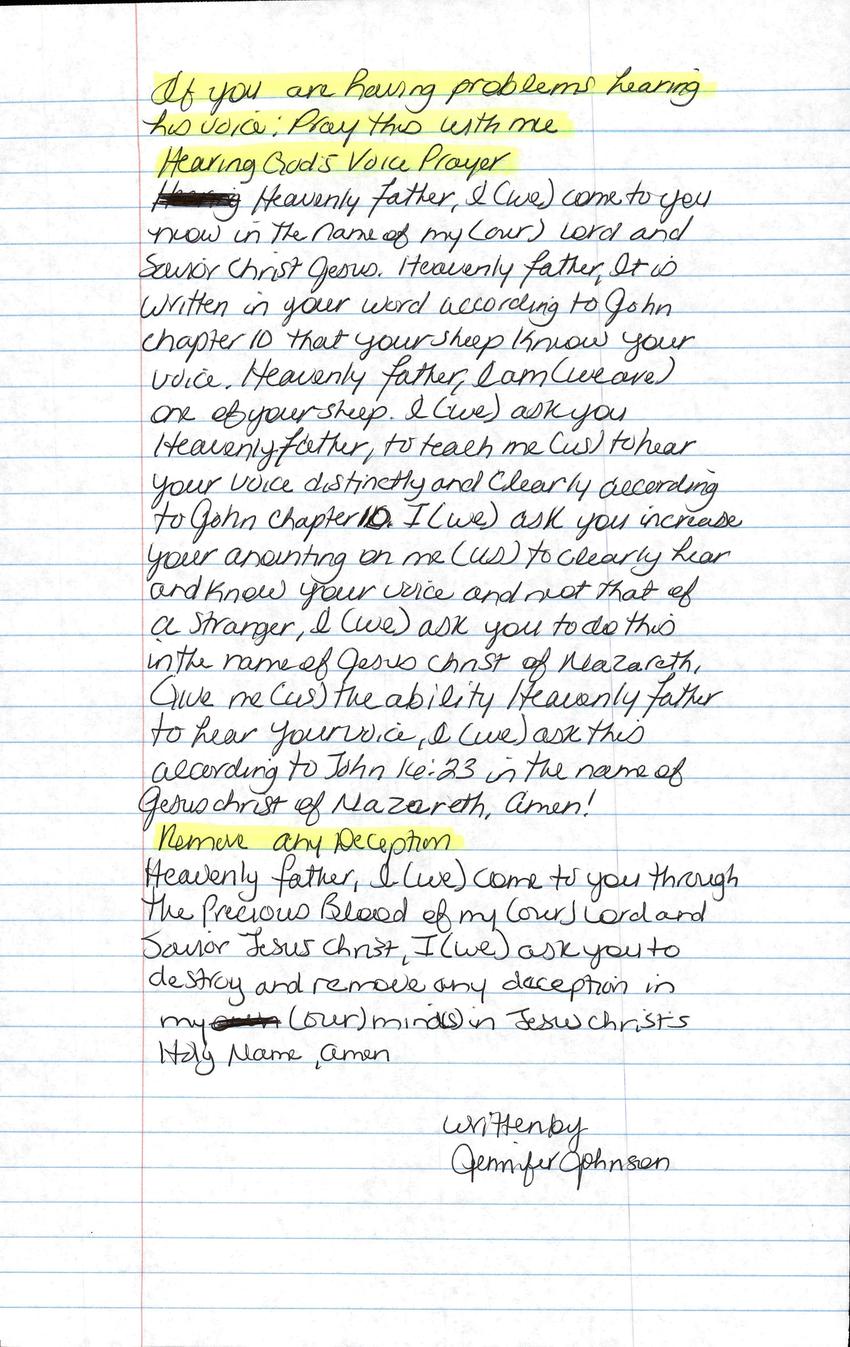 If you are having problems hearing
his voice; Pray this with me
Hearing God's Voice Prayer
Heavenly father, I (we) come to you
now in the name of my (our) Lord and
Savior Christ Jesus. Heavenly father, It is
written in your word according to John
chapter 10 that your sheep know your
voice. Heavenly father, I am (we are)
one of your sheep. I (we) ask you
Heavenly father, to teach me (us) to hear
your voice distinctly and Clearly according
to John chapter 10. I (we) ask you increase
your anointing on me (us) to clearly hear
and know your voice and not that of
a stranger, I (we) ask you to do this
in the name of Jesus christ of Nazareth,
Give me (us) the ability Heavenly father
to hear your voice, I (we) ask this
according to John 16:23 in the name of
Jesus christ of Nazareth, Amen!
Remove any Deception
Heavenly father, I (we) come to you through
the Precious Blood of my (our) Lord and
Savior Jesus Christ, I (we) ask you to
destroy and remove any deception in
my (our) mind(s) in Jesus christ's
Holy Name, amen
written by
Jennifer Johnson